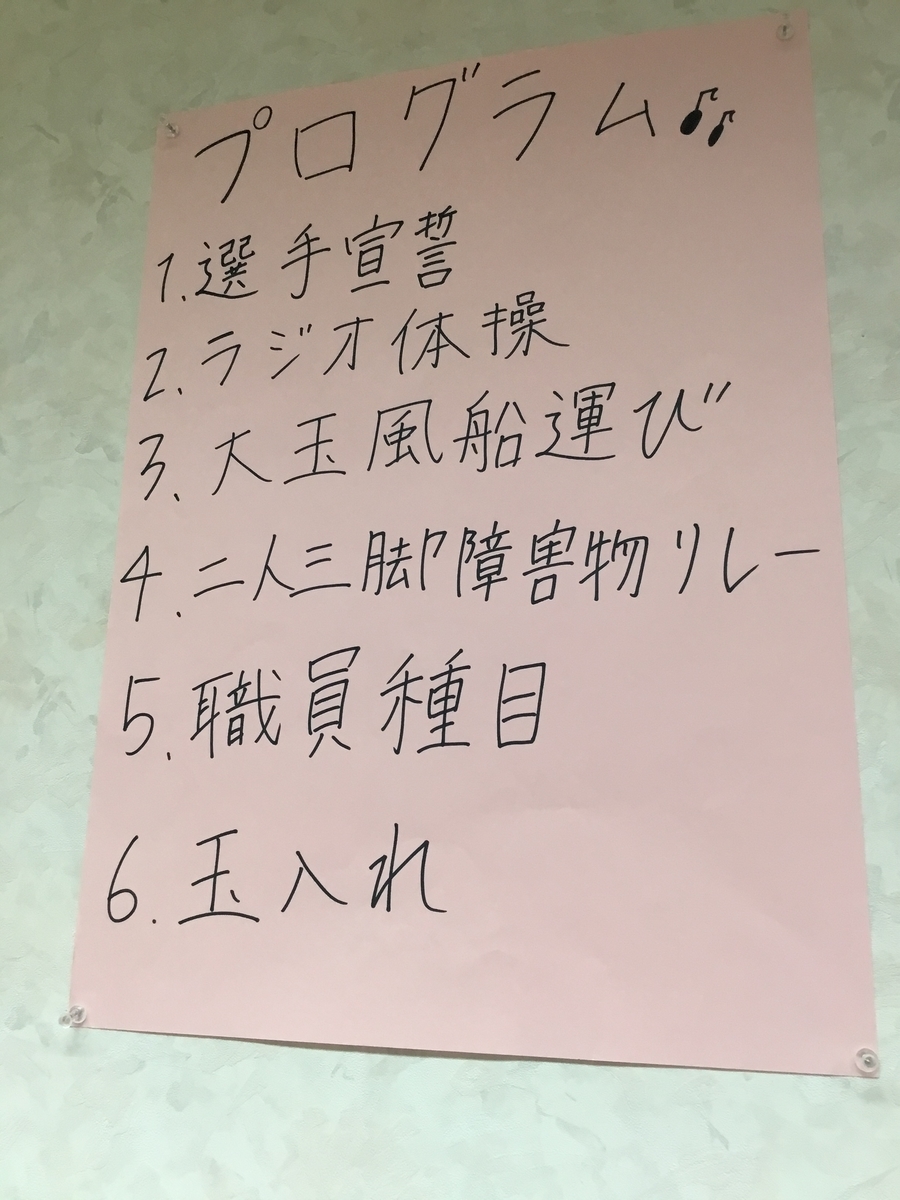 プログラム♪♪
1.選手宣誓
2.ラジオ体操
3.大玉風船運び
4.二人三脚障害物リレー
5.職員種目
6.玉入れ